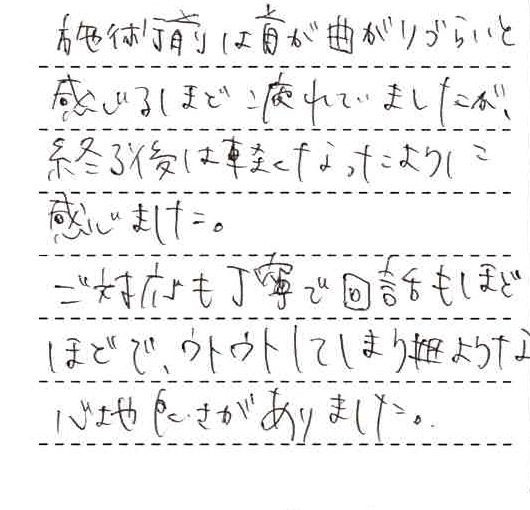 施術前は首が曲がりづらいと
感じるほど疲れていましたが、
終る後は軽くなったように
感じました。
ご対応も丁寧で回話もほど
ほどで、ウトウトしてしまうような
心地良さがありました。